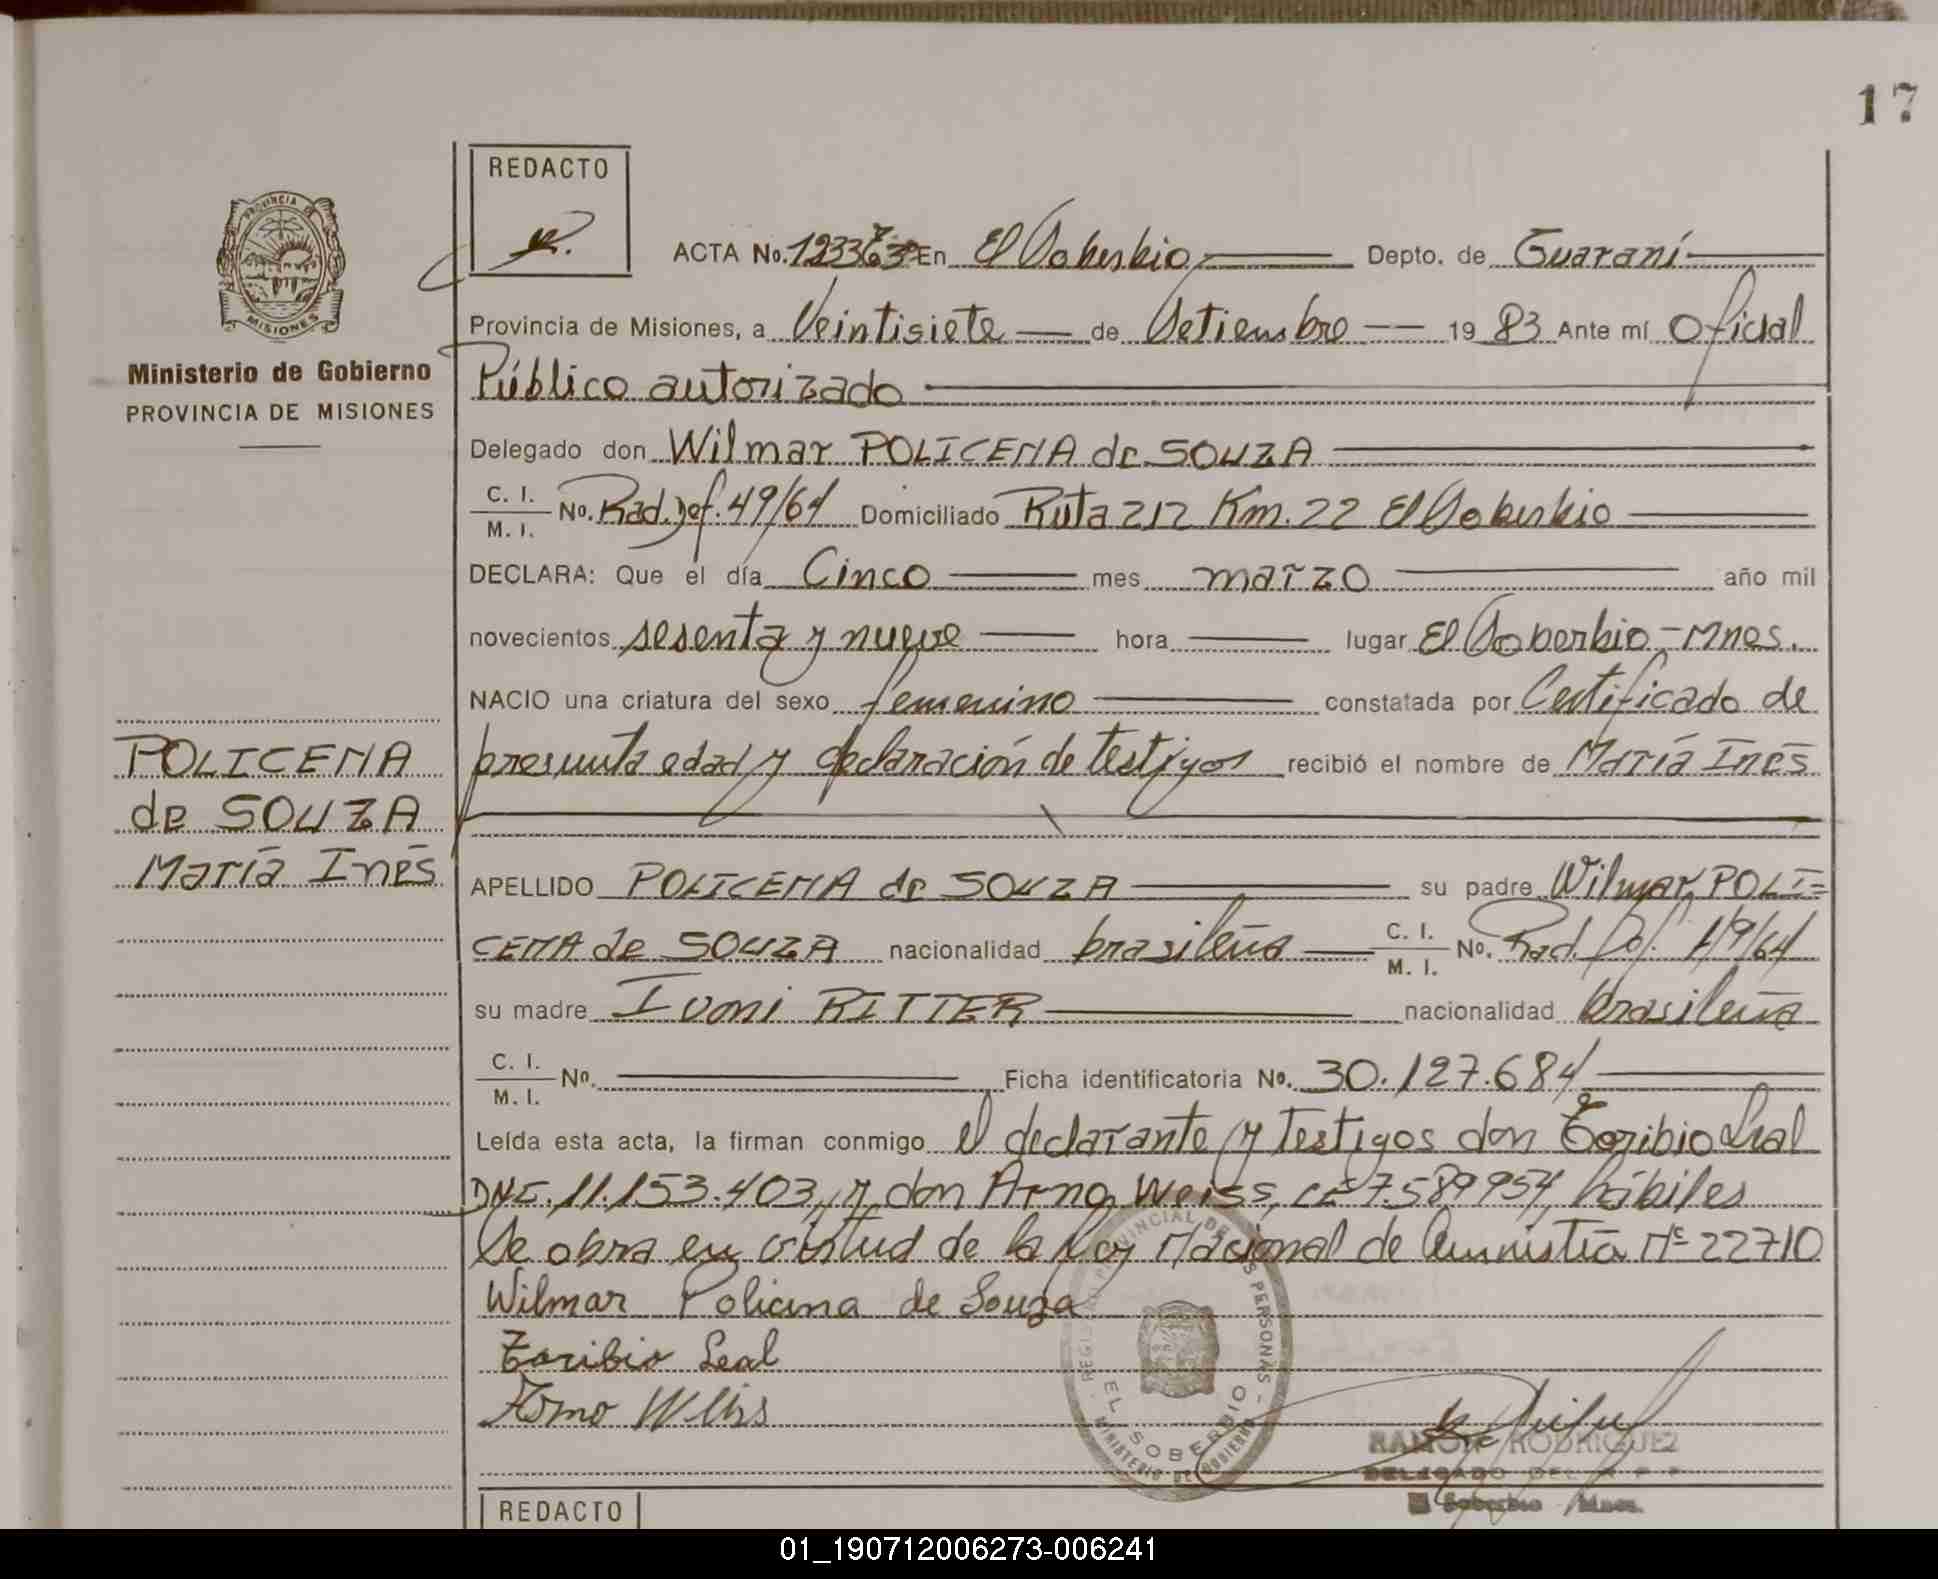 17
REDACTO
ACTA No. En El Soberbio Depto. de Guaraní
Provincia de Misiones, a Veintisiete de Setiembre 19 83 Ante mí Oficial
Público autorizado
PROVINCIA DE
MISIONES
Ministerio de Gobierno
PROVINCIA DE MISIONES
Delegado don Wilmar POLICENA de SOUZA
C. I.
M. I.
No. Rad. Def. 49/64 Domiciliado Ruta 212 Km. 22 El Soberbio
DECLARA: Que el día Cinco mes marzo año mil
novecientos sesenta y nueve hora lugar El Soberbio-Mnes.
NACIO una criatura del sexo femenino constatada por Certificado de
presunta edad y declaración de testigos recibió el nombre de María Inés
POLICENA
de SOUZA
María Inés
APELLIDO POLICENA de SOUZA su padre Wilmar POLI=
CENA de SOUZA nacionalidad brasileña C. I. M. I. No. Rad. Def. 49/64
su madre Ivoni RITTER nacionalidad brasileña
C. I.
M. I.
No. Ficha identificatoria No. 30.127.684
Leída esta acta, la firman conmigo el declarante y testigos don Toribio Leal
DNI. 11.153.403, y don Arno Weiss, CI 7.589954, hábiles
Se obra en virtud de la Ley Nacional de Amnistía Nº 22710
Wilmar Policena de Souza
Toribio Leal
Arno Weiss
REGISTRO PROVINCIAL DE LAS PERSONAS
EL SOBERBIO
MINISTERIO DE GOBIERNO
RAMON RODRIGUEZ
DELEGADO DEL R P P
El Soberbio Mnes.
REDACTO
01_190712006273-006241